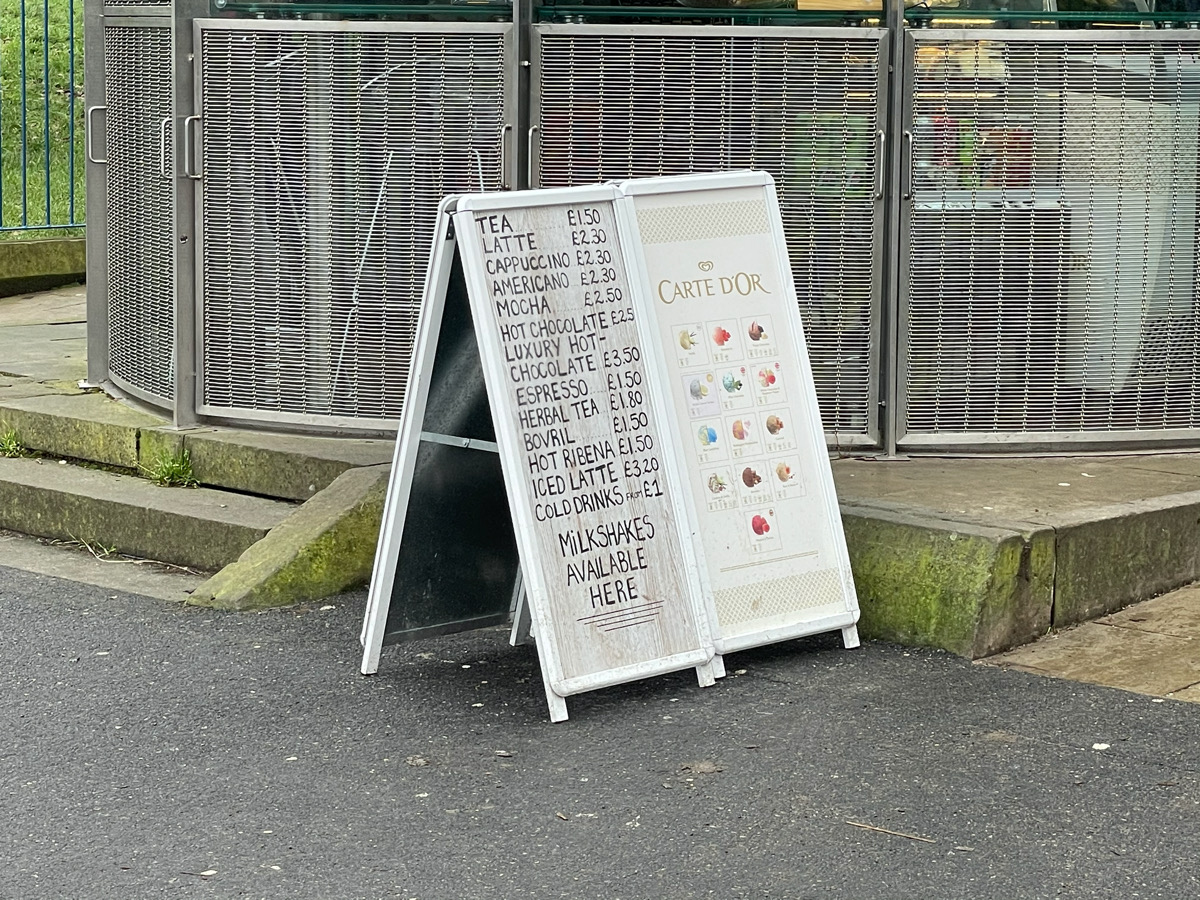 TEA £1.50
LATTE £2.30
CAPPUCCINO £2.30
AMERICANO £2.30
MOCHA £2.50
HOT CHOCOLATE £2.5
LUXURY HOT-
CHOCOLATE £3.50
ESPRESSO £1.50
HERBAL TEA £1.80
BOVRIL £1.50
HOT RIBENA £1.50
ICED LATTE £3.20
COLD DRINKS FROM £1
MILKSHAKES
AVAILABLE
HERE
CARTE D'OR